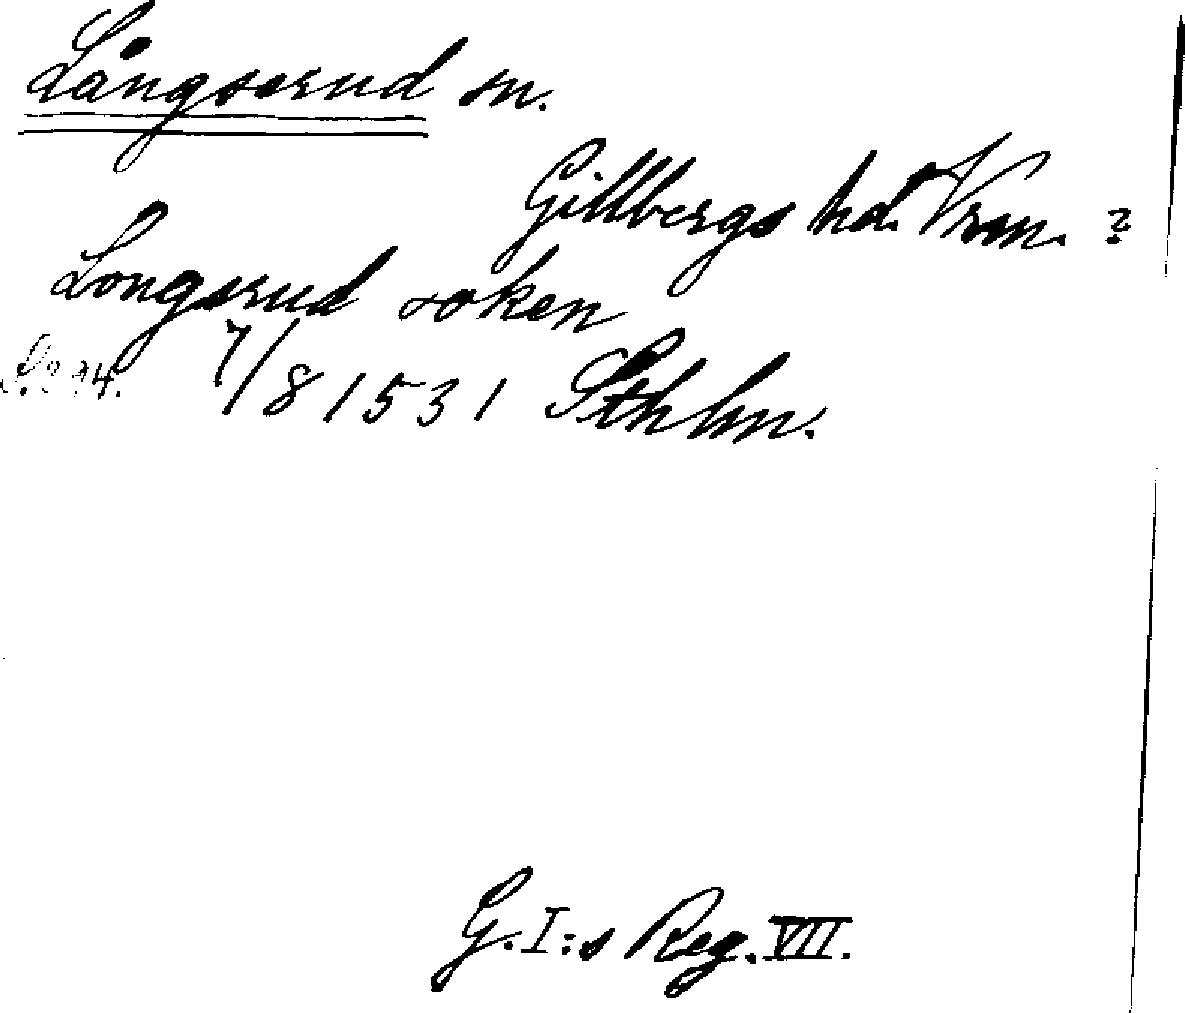 Långserud sn.
Gillbergs hd. Vrm. ?
Longsrud soken
S. 294. 7/8 1531 Sthlm.
G. I:s Reg. VII.